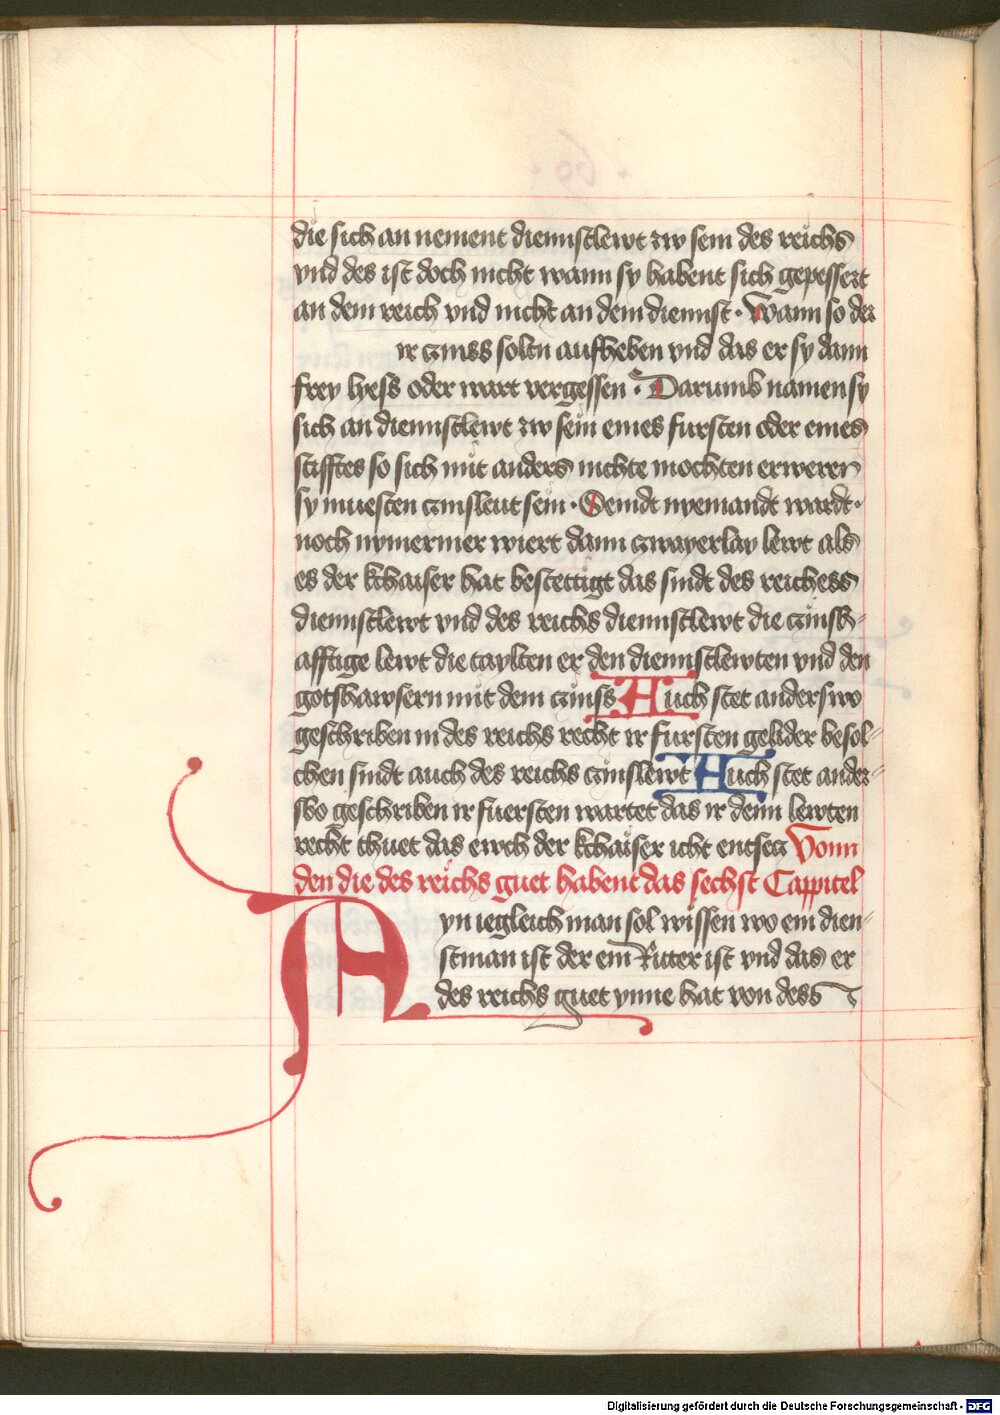 die sich an nement diennstlewt zw sein des reichs
vnd des ist doch nicht wann sy habent sich gepessert
an dem reich vnd nicht an dem diennst · Wann so der
ir czinss soltn aufheben vnd das er sy dann
frey hyess oder wart vergessen · Darumb namen sy
sich an diennstlewt zw sein eines fursten oder eines
stifftes so sich mit anders nichte mochten erweren
sy muesten czinsleut sein · Seindt nyemandt wardt ·
noch nymermer wiert dann czwayerlay lewt als
es der khaiser hat bestettigt das sindt des reichess
diennstlewt vnd des reichs diennstlewt die czinsh-
afftige lewt die taylten er den diennstlewten vnd den
gotshawsern mit dem czinss Auch stet anderswo
geschriben in des reichs recht ir fursten gelider besol-
chen sindt auch des reichs czinslewt Auch stet ander-
sbo geschriben ir fuersten wartet das ir denn lewten
recht thuet das ewch der khaiser icht entsecz Vonn
den die des reichs guet habent das sechst Cappitel
Ayn iegleich man sol wissen wo ein dien-
stman ist der ein Ritter ist vnd das er
des reichs guet ynne hat von dess
Digitalisierung gefördert durch die Deutsche Forschungsgemeinschaft - DFG